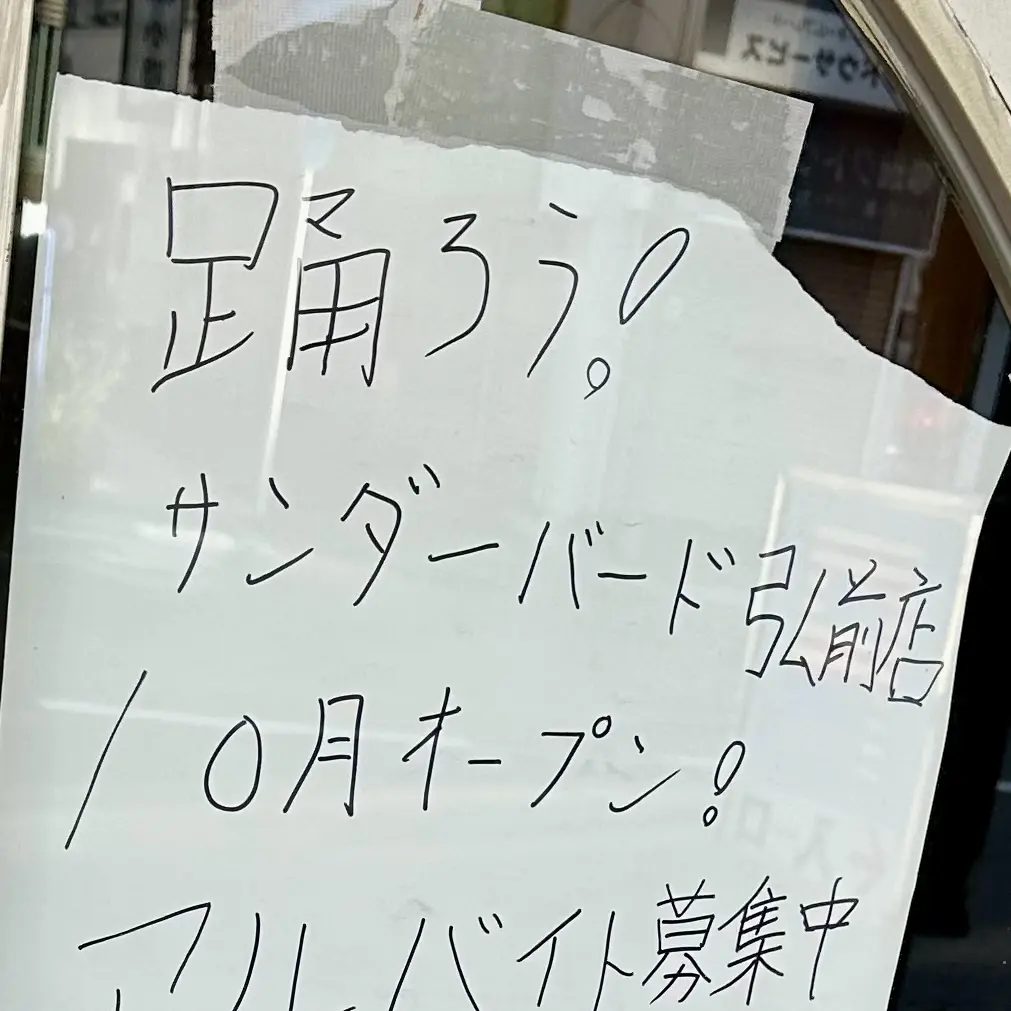 踊ろう!
サンダーバード弘前店
10月オープン!
アルバイト募集中